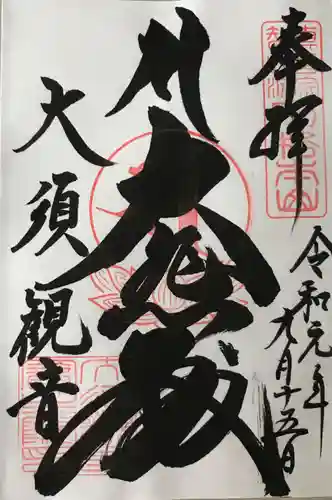 奉拝
令和元年
九月十五日
大悲殿
大須観音